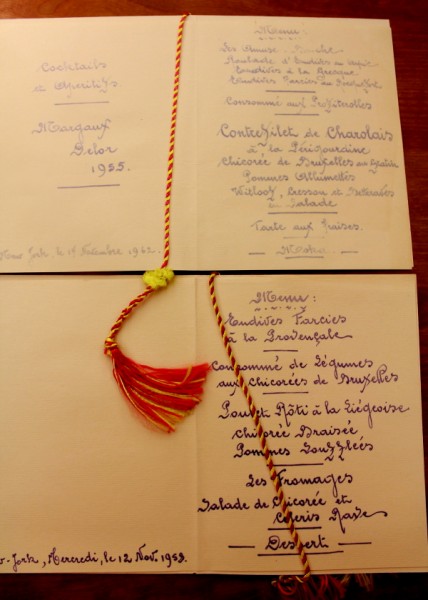 Cocktails
et Aperitifs
Margaux
Delor
1955.
New York, le
Menu:
Endives à la Grecque
Endives Farcies au
Consommé aux Profiterolles
Contrefilet de Charolais
à la Périgourdine
Chicorée de Bruxelles au Gratin
Pommes Allumettes
Witloof, Cresson et Betteraves
en Salade
Tarte aux Fraises.
Moka
Menu:
Endives Farcies
à la Provençale
Consommé de Légumes
aux Chicorées de Bruxelles
Poulet Rôti à la Liégeoise
Chicorée Braisée
Pommes Soufflées
Les Fromages
Salade de Chicorée et
Céleris Rave
Dessert
York, Mercredi, le 12 Nov. 1958.